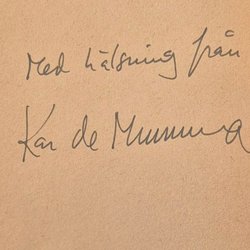 Med hälsning från
Kar de Mumma